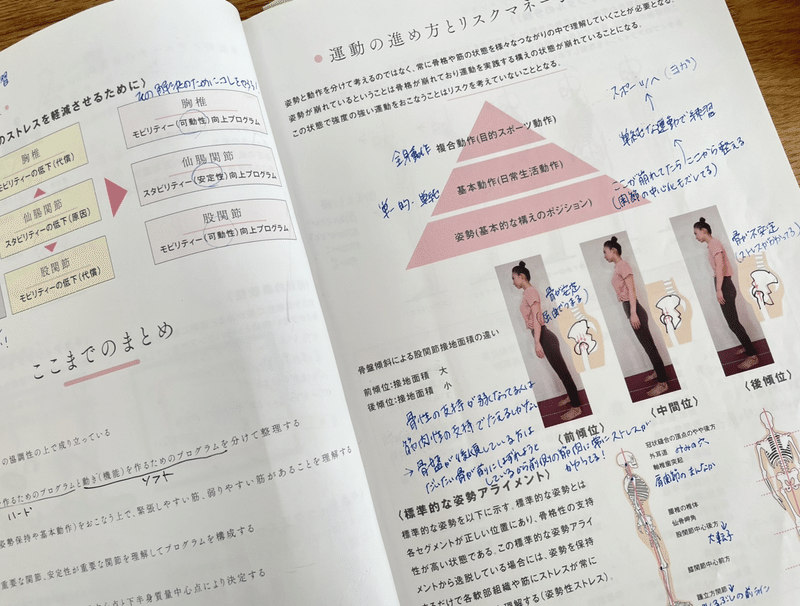 習
のストレスを軽減させるために〉
胸椎
モビリティーの低下(代償)
仙腸関節
スタビリティーの低下(原因)
股関節
モビリティーの低下(代償)
胸椎
モビリティー(可動性)向上プログラム
仙腸関節
スタビリティー(安定性)向上プログラム
股関節
モビリティー(可動性)向上プログラム
ここまでのまとめ
の協調性の上で成り立っている
作るためのプログラムと動き(機能)を作るためのプログラムを分けて整理する
ハード
ソフト
姿勢保持や基本動作)をおこなう上で、緊張しやすい筋、弱りやすい筋があることを理解する
重要な関節、安定性が重要な関節を理解してプログラムを構成する
と下半身質量中心点により決定する
運動の進め方とリスクマネー
姿勢と動作を分けて考えるのではなく、常に骨格や筋の状態を様々なつながりの中で理解していくことが必要となる。
姿勢が崩れているということは骨格が崩れており運動を実践する構えの状態が崩れていることになる。
この状態で強度の強い運動をおこなうことはリスクを考えていないこととなる。
スポーツへ(ヨガ)
↑
単純な運動で練習
↑
ここが崩れてたらここから整える
(関節の中心化もだしてる)
全身動作
複合動作(目的スポーツ動作)
単一的・単純
基本動作(日常生活動作)
姿勢(基本的な構えのポジション)
骨が安定
骨が不安定
(ストレスがかかってる)
骨盤傾斜による股関節接地面積の違い
前傾位:接地面積 大
後傾位:接地面積 小
(前傾位)
(中間位)
(後傾位)
骨性の支持が弱くなってる人は
筋肉性の支持でたえるしかない
→骨盤が後傾している方は
だいたい骨が前にはずれようと
しているから前側の筋肉に常にストレスが
かかってる!
〈標準的な姿勢アライメント〉
標準的な姿勢を以下に示す。標準的な姿勢とは
各セグメントが正しい位置にあり、骨格性の支持
性が高い状態である。この標準的な姿勢アライ
メントから逸脱している場合には、姿勢を保持
するだけで各軟部組織や筋にストレスが常に
理解する(姿勢性ストレス)。
冠状縫合の頂点のやや後方
外耳道
みみの穴
軸椎歯突起
肩関節のまんなか
腰椎の椎体
仙骨岬角
股関節中心後方
大転子
膝関節中心前方
踵立方関節
くるぶしの前ライン